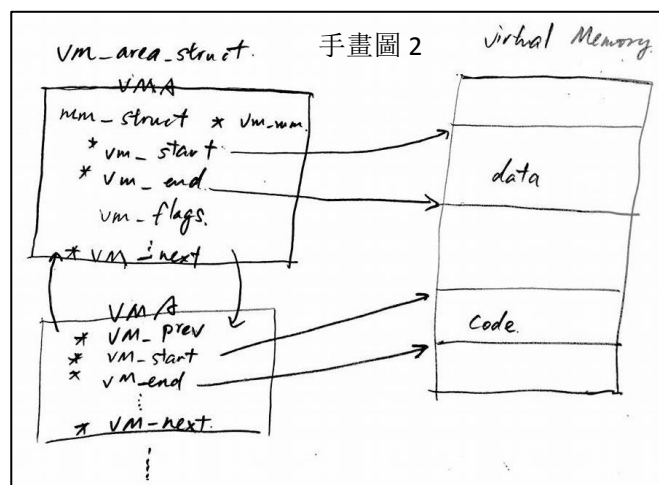 手畫圖 2
vm_area_struct.
VMA
mm_struct * vm_mm.
* vm_start
* vm_end.
vm_flags.
* VM_next
VMA
* VM_prev
* vm_start
* vm_end
* vm_next.
virtual Memory.
data
code.